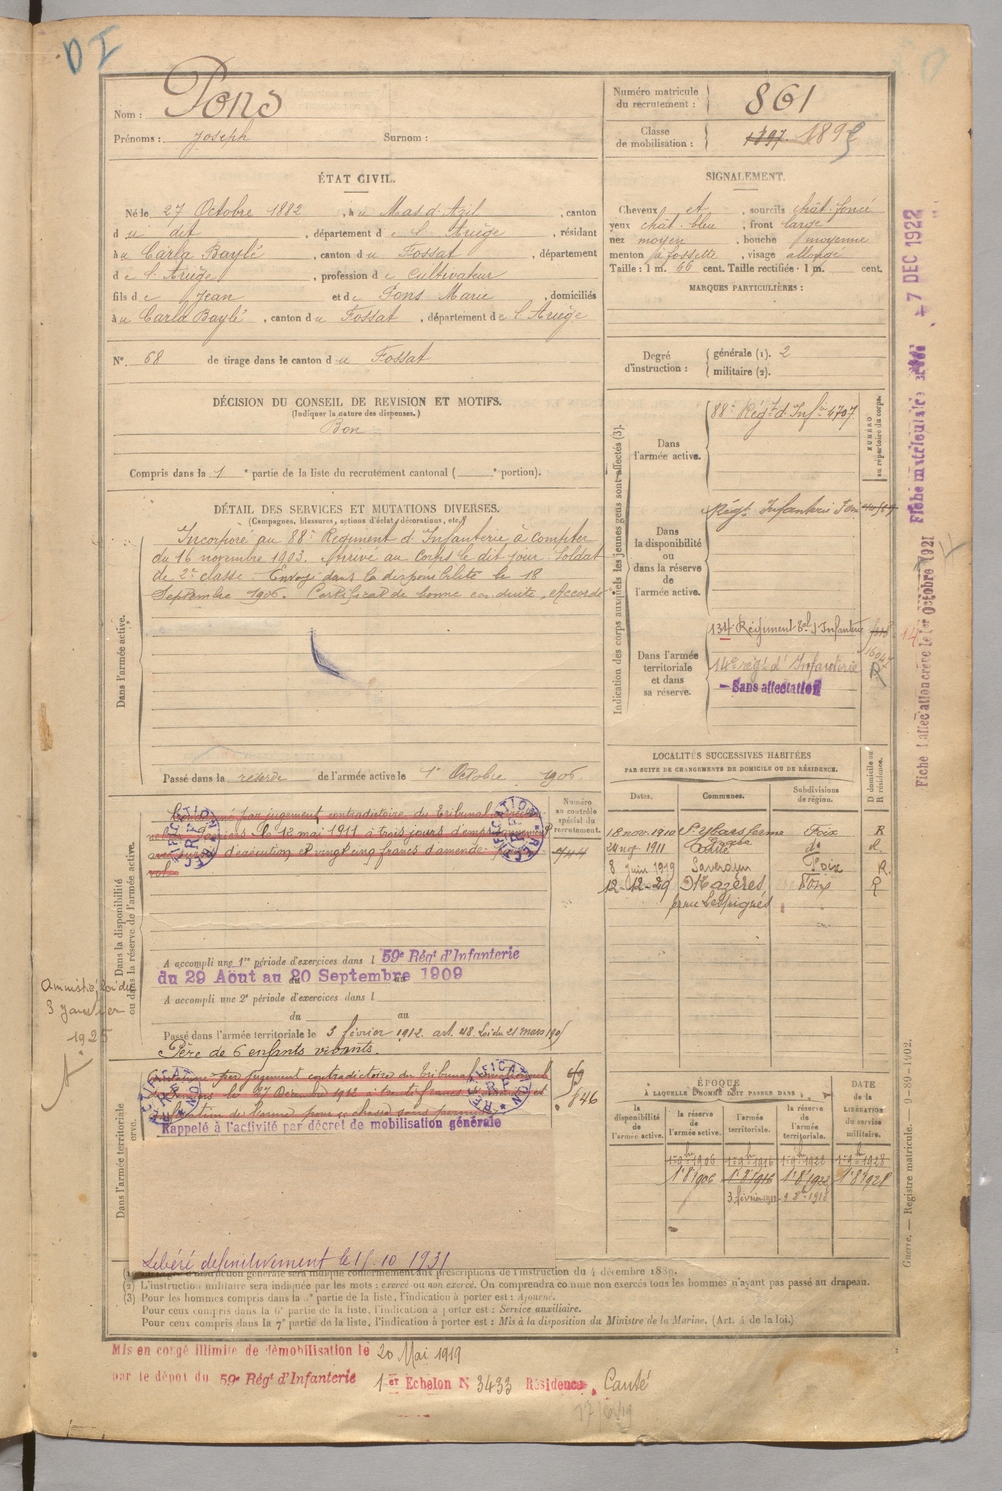 DI
Nom : Pons
Prénoms : Joseph Surnom :
Numéro matricule du recrutement : 861
Classe de mobilisation : 1897 189
ÉTAT CIVIL.
Né le 27 Octobre 1882, à u Mas d'Azil, canton
d u dit, département de l'Ariège, résidant
à u Carla Baylé, canton d u Fossat, département
d e l'Ariège, profession de Cultivateur
fils d e Jean et de Pons Marie, domiciliés
à u Carla Baylé, canton d u Fossat, département de l'Ariège
N° 68 de tirage dans le canton d u Fossat
SIGNALEMENT.
Cheveux et, sourcils chât. foncé
yeux chât. bleu, front large
nez moyen, bouche moyenne
menton à fossette, visage allongé
Taille : 1 m. 66 cent. Taille rectifiée : 1 m. cent.
MARQUES PARTICULIÈRES :
Degré d'instruction : générale (1). 2
militaire (2).
DÉCISION DU CONSEIL DE REVISION ET MOTIFS.
(Indiquer la nature des dispenses.)
Bon
Compris dans la 1e partie de la liste du recrutement cantonal ( e portion).
DÉTAIL DES SERVICES ET MUTATIONS DIVERSES.
(Campagnes, blessures, actions d'éclat, décorations, etc.)
Dans l'armée active.
Incorporé au 88e Régiment d'Infanterie à compter
du 16 novembre 1903. Arrivé au Corps le dit jour. Soldat
de 2e classe. Envoyé dans la disponibilité le 18
Septembre 1906. Certificat de bonne conduite "Accordé"
Passé dans la réserve de l'armée active le 1er Octobre 1906.
Indication des corps auxquels les jeunes gens sont affectés (3).
NUMÉRO au répertoire du corps.
Dans l'armée active.
88e Régt d'Infie 4707
Dans la disponibilité ou dans la réserve de l'armée active.
Régt Infanterie Foix
Dans l'armée territoriale et dans sa réserve.
134 Régiment tal d'Infanterie
14e régt d'Infanterie
Sans affectation
Dans la disponibilité ou dans la réserve de l'armée active.
Numéro au contrôle spécial du recrutement.
Condamné par jugement contradictoire du Tribunal
le 12 mai 1911 à trois jours d'emprisonnement
avec sursis d'exécution et vingt cinq francs d'amende pour
vol.
RECTIFICATION R F
A accompli une 1re période d'exercices dans l 59e Régt d'Infanterie
du 29 Août au 20 Septembre 1909
A accompli une 2e période d'exercices dans l
du au
Passé dans l'armée territoriale le 3 février 1912. art. 48. Loi du 21 mars 1905
Père de 6 enfants vivants.
Amnistié loi du
3 Janvier
1925
Dans l'armée territoriale
Condamné par jugement contradictoire du Tribunal Correctionnel
RECTIFICATION R F
Rappelé à l'activité par décret de mobilisation générale
Libéré définitivement le 15.10 1931
LOCALITÉS SUCCESSIVES HABITÉES
PAR SUITE DE CHANGEMENTS DE DOMICILE OU DE RÉSIDENCE.
Dates. Communes. Subdivisions de région. D domicile ou R résidence.
18 nov. 1910 St Ybars ferme Foix R
24 aog 1911 Canté do R
8 Juin 1919 Saverdun Foix R.
12-12-29 Mazères Foix R
ÉPOQUE
À LAQUELLE L'HOMME DOIT PASSER DANS :
DATE de la LIBÉRATION du service militaire.
la disponibilité de l'armée active. la réserve de l'armée active. l'armée territoriale. la réserve de l'armée territoriale.
1er 9bre 1906 1er 9bre 1916 1er 9bre 1922 1er 9bre 1928
1er 8 1906 1er 8 1916 1er 8 1922 1er 8 1928
3 février 1912
(1) Le degré d'instruction générale sera indiqué conformément aux prescriptions de l'instruction du 4 décembre 1889.
(2) L'instruction militaire sera indiquée par les mots : exercé ou non exercé. On comprendra comme non exercés tous les hommes n'ayant pas passé au drapeau.
(3) Pour les hommes compris dans la partie de la liste, l'indication à porter est : Ajourné.
Pour ceux compris dans la 6e partie de la liste, l'indication à porter est : Service auxiliaire.
Pour ceux compris dans la 7e partie de la liste, l'indication à porter est : Mis à la disposition du Ministre de la Marine. (Art. 4 de la loi.)
Mis en congé illimité de démobilisation le 20 Mai 1919
par le dépôt du 59e Régt d'Infanterie 1er Echelon N 3433 Résidence, Canté
Guerre. — Registre matricule.
7 DEC 1922